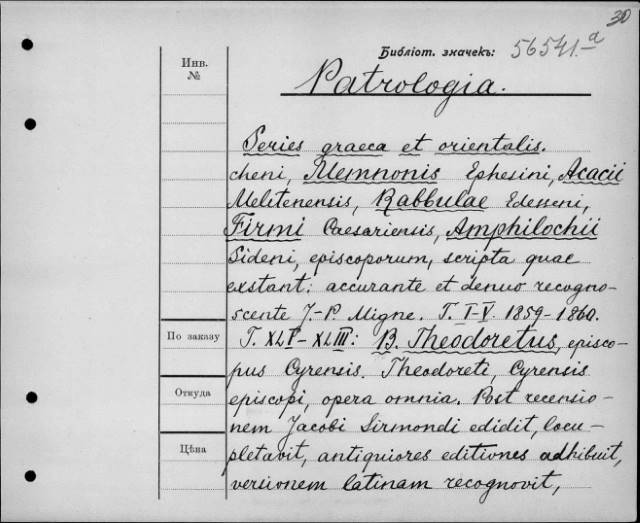 30
Библіот. значекъ: 56541.a
Инв.
№
Patrologia.
Series graeca et orientalis.
cheni, Memnonis Ephesini, Acacii
Melitenensis, Rabbulae Edesseni,
Firmi Caesariensis, Amphilochii
Sideni, episcoporum, scripta quae
exstant: accurante et denuo recogno-
scente J.-P. Migne. T. I-V. 1859-1860.
По заказу
T. XLV-XLIII: B. Theodoretus, episco-
pus Cyrensis. Theodoreti, Cyrensis
Откуда
episcopi, opera omnia. Post recensio-
nem Jacobi Sirmondi edidit, locu-
Цѣна
pletavit, antiquiores editiones adhibuit,
versionem latinam recognovit,